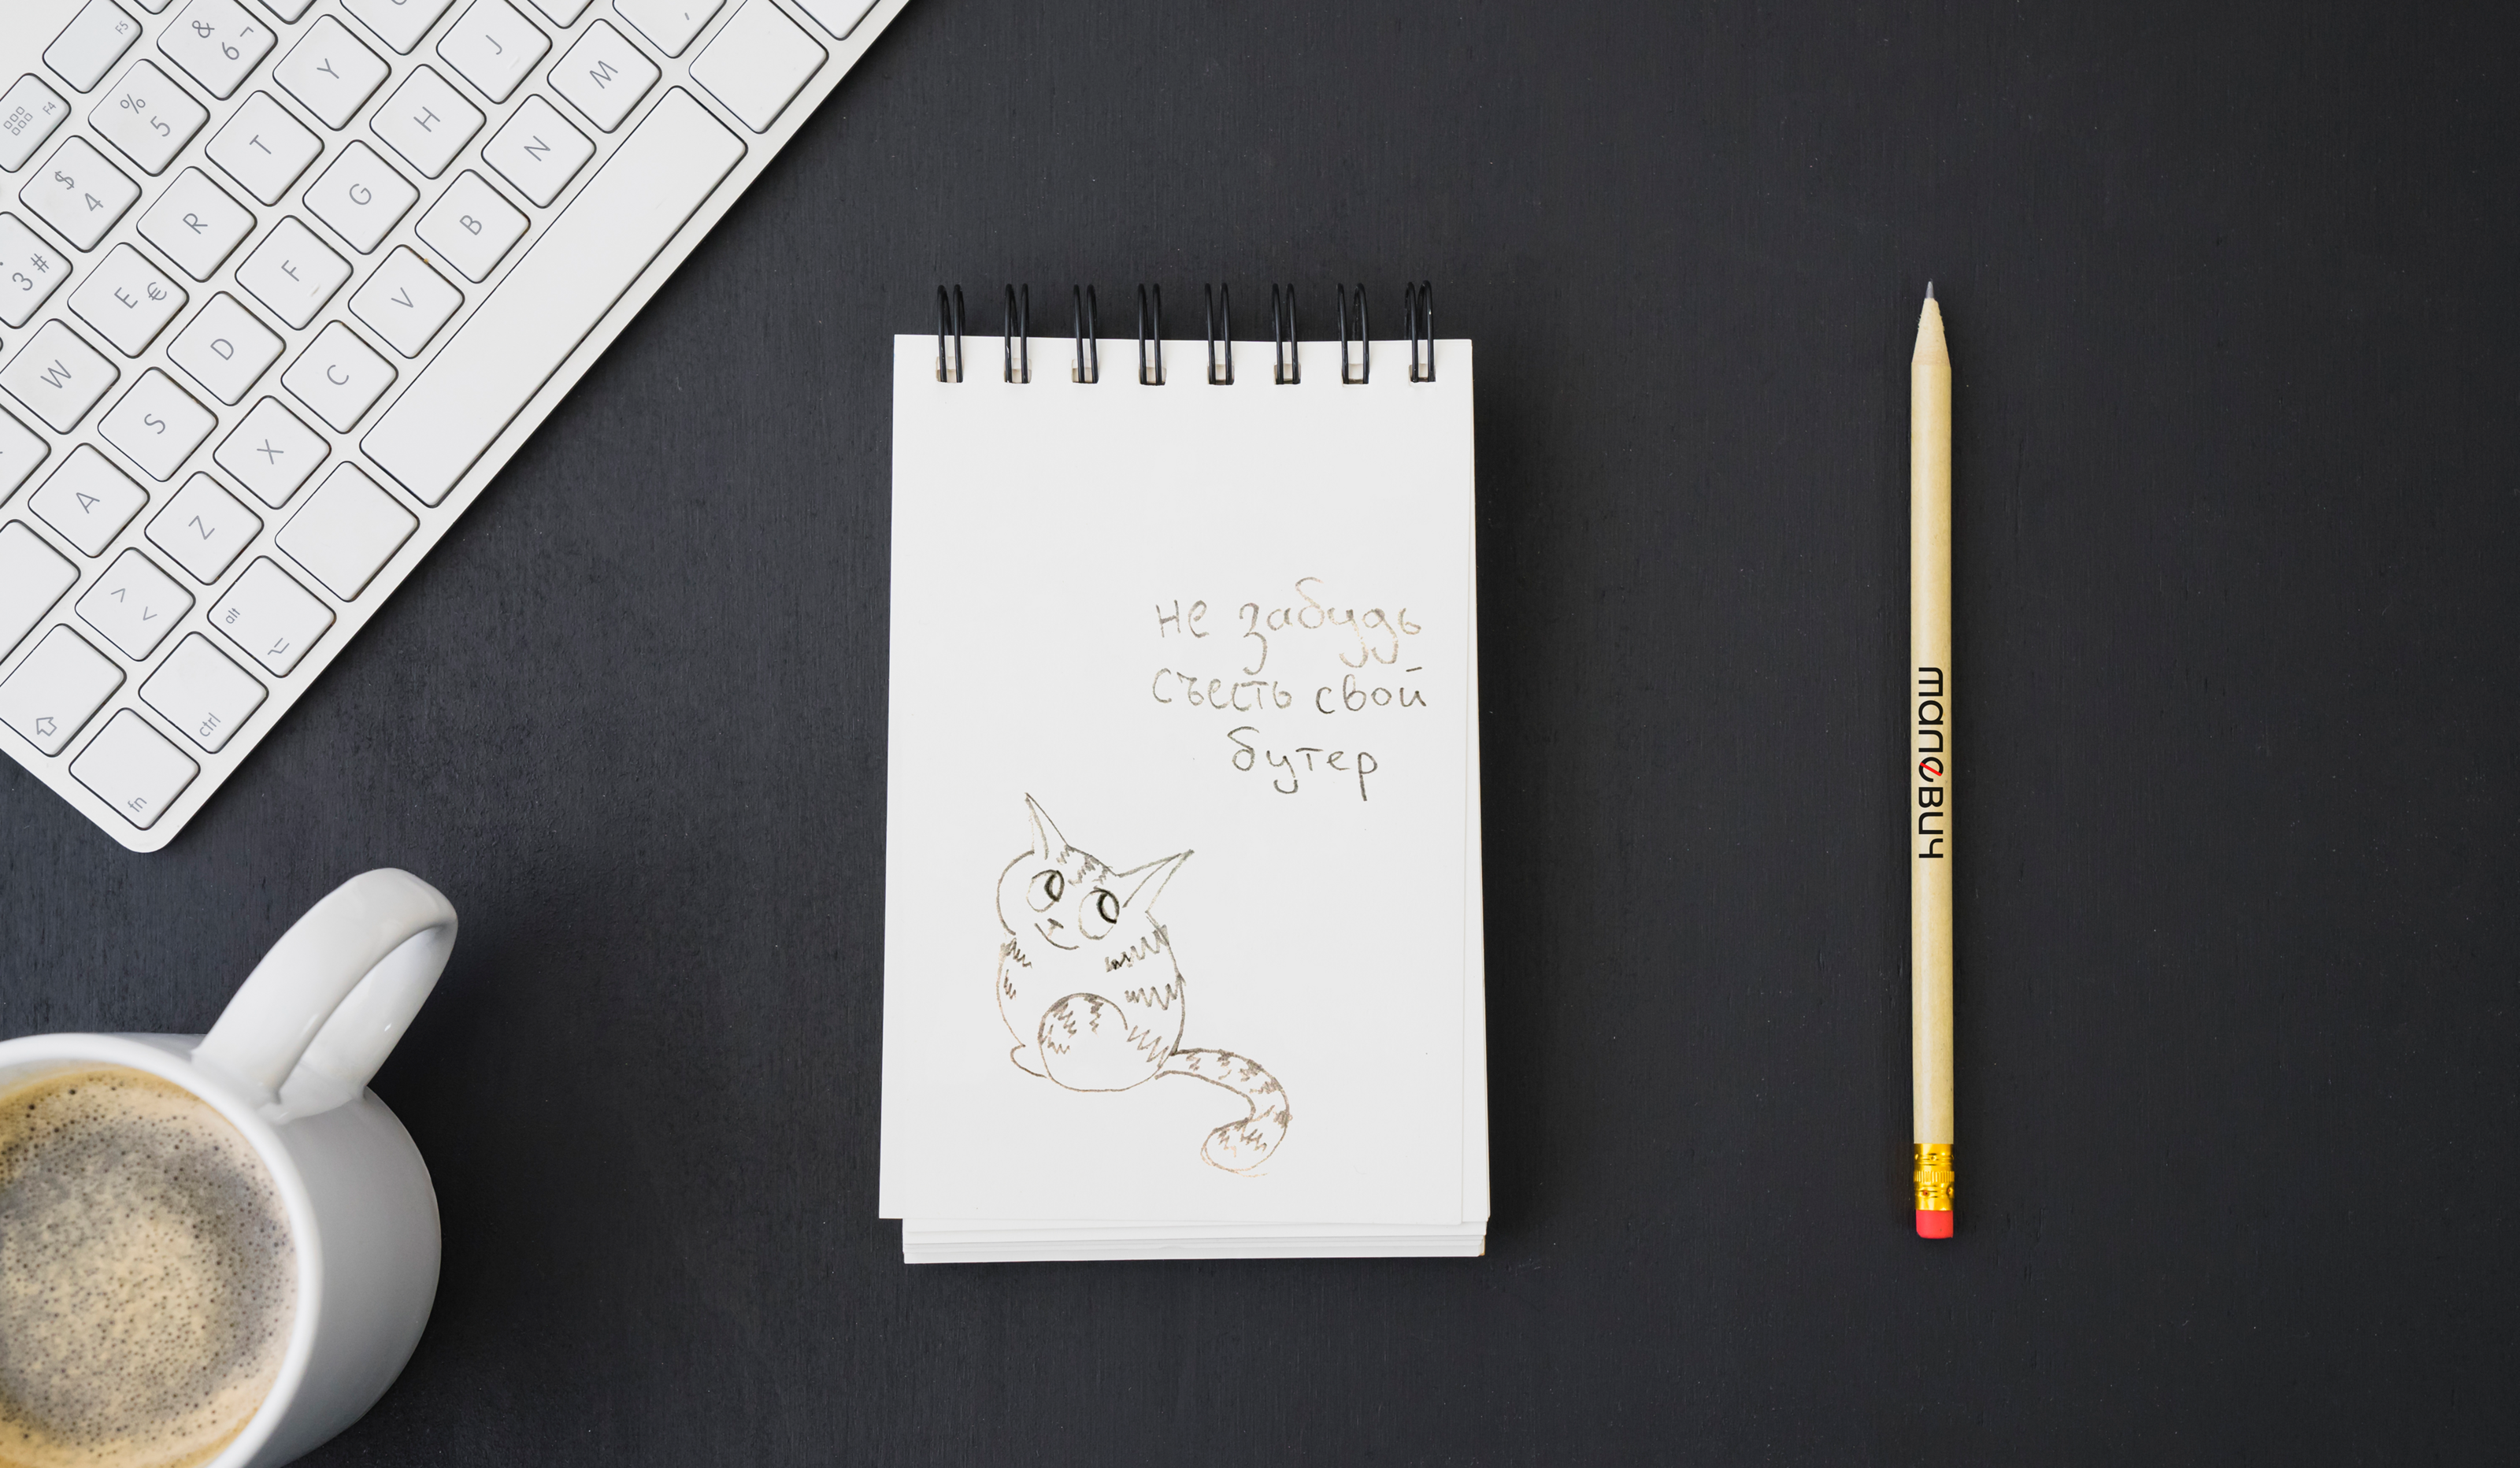 F4 F5
# 3 $ 4 % 5 & 6 ¬
W E € R T Y
A S D F G H J
> < Z X C V B N M ,
fn ctrl alt
не забудь
съесть свой
бутер
малевич